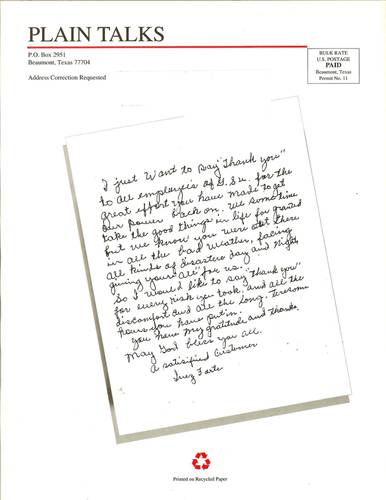 PLAIN TALKS
P.O. Box 2951
Beaumont, Texas 77704
Address Correction Requested
BULK RATE
U.S. POSTAGE
PAID
Beaumont, Texas
Permit No. 11
I just want to say "Thank you"
to all employees of G.S.U. for the
great effort you have made to get
our power back on. We sometime
take the good things in life for granted
but we know you were out there
in all the bad weather, facing
all kinds of disasters day and night
giving your "all" for us.
So I would like to say "thank you"
for every risk you took and all the
discomfort and all the long, tiresome
hours you have put in.
You have my gratitude and thanks.
May God bless you all.
A satisified Customer
Inez
Printed on Recycled Paper